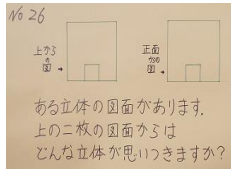 No 26
上から
の
図 →
正面
からの
図 →
ある立体の図面があります.
上の二枚の図面からは
どんな立体が思いつきますか?